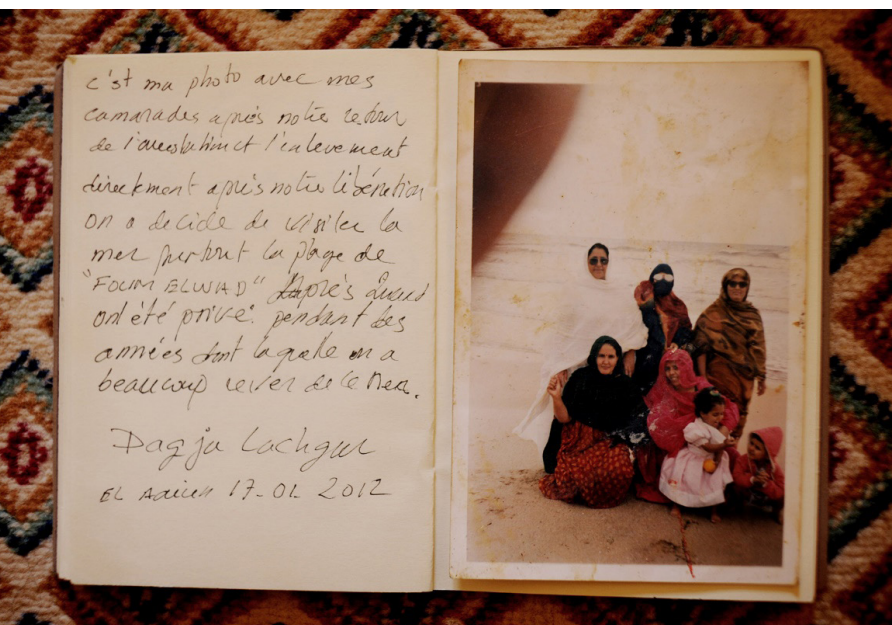 c'st ma photo avec mes
camarades après notre retour
de l'arrestation et l'enlevement
directement après notre libération
on a decide de visiter la
mer partout la plage de
"FOUM ELWAD" après
ont été privé pendant des
années dont laquelle on a
beaucoup rever de ce Mer.
Dagja Lachgar
EL Aaiun 17-01 2012